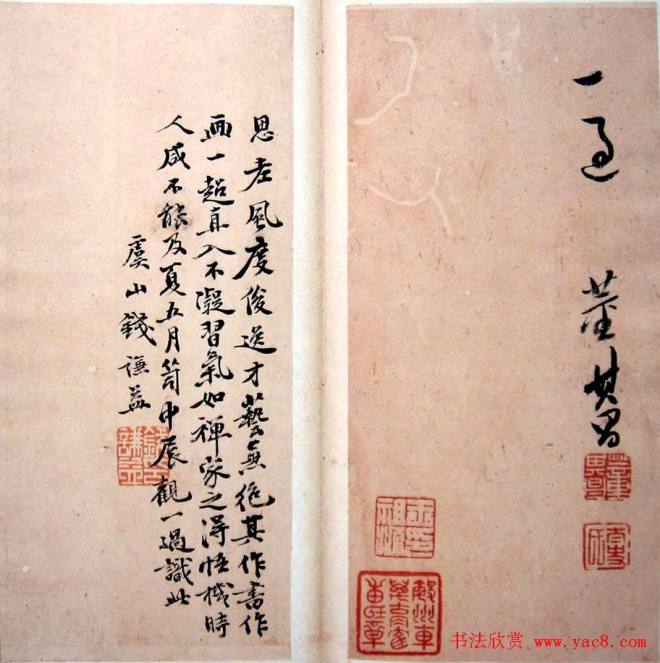 一過
董其昌
思老風度俊逸才藝無絕其作書作
画一超直入不凝習氣如禪家之得悟機時
人咸不能及夏五月笥中展觀一過識此
虞山錢謙益
书法欣赏 www.yac8.com